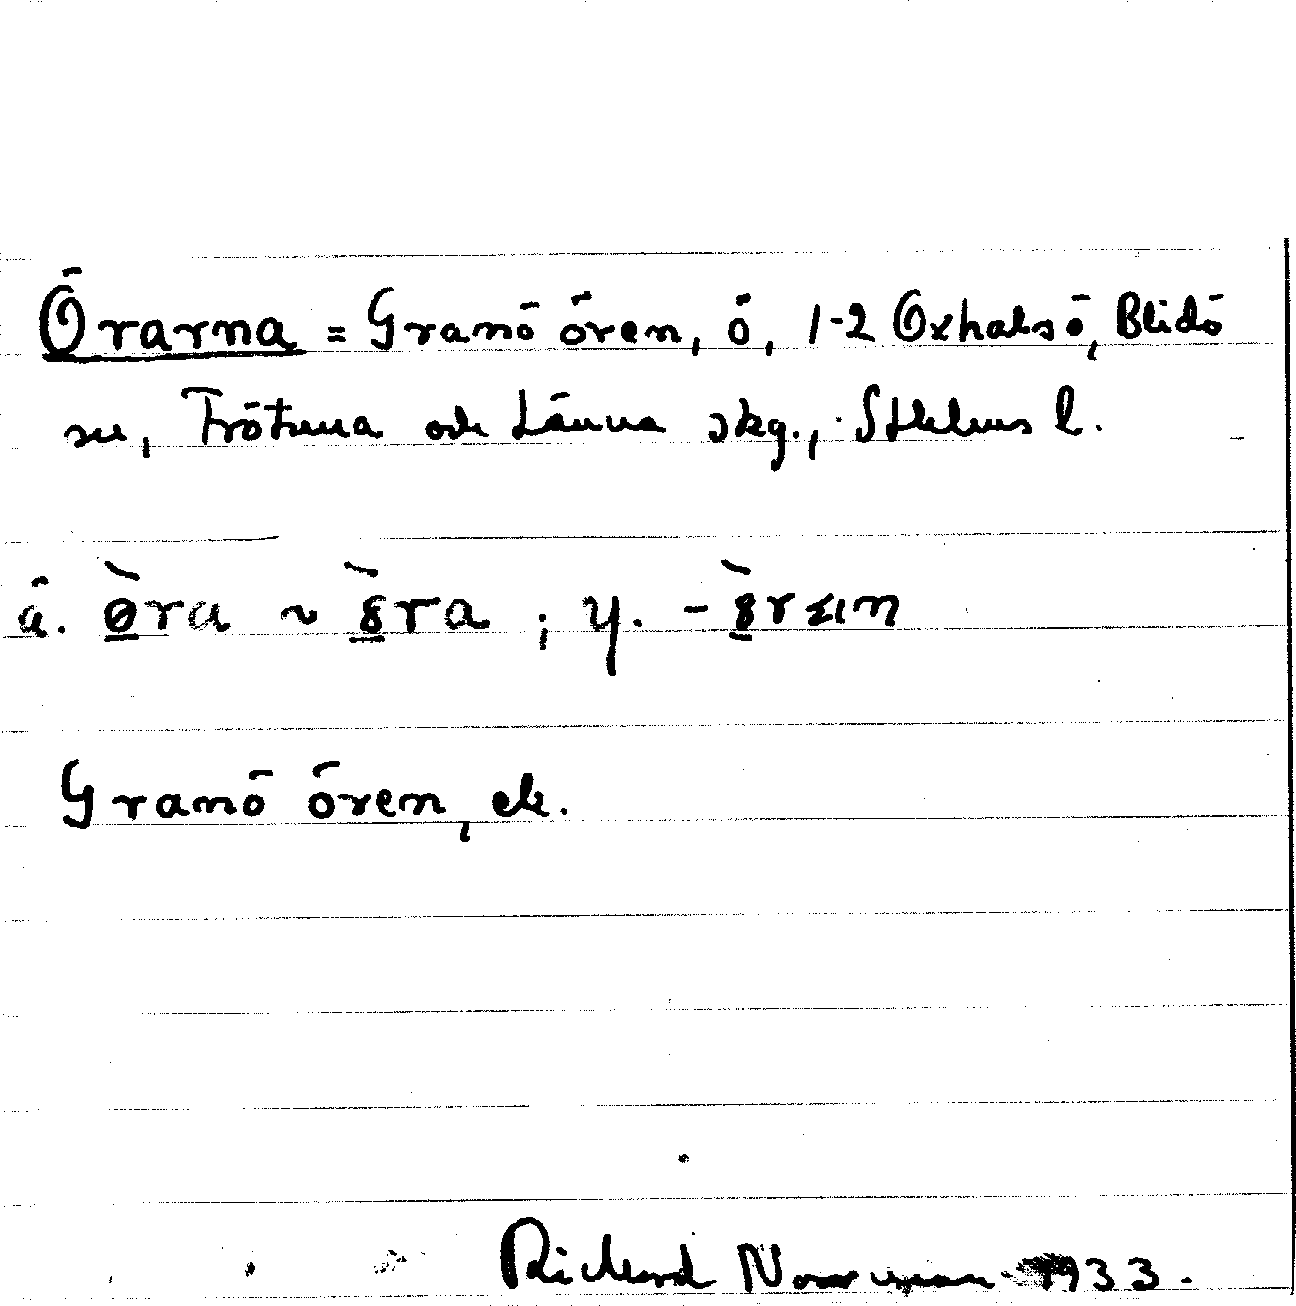 Örarna = Granö ören, ö, 1-2 Oxhalsö, Blidö
sn, Frötuna och Länna skg., Sthlms l.
ä. ø̀ra ~ 8̀ra ; y. - 8̀rɛn
Granö ören, ek.
Richard Norrman 1933.